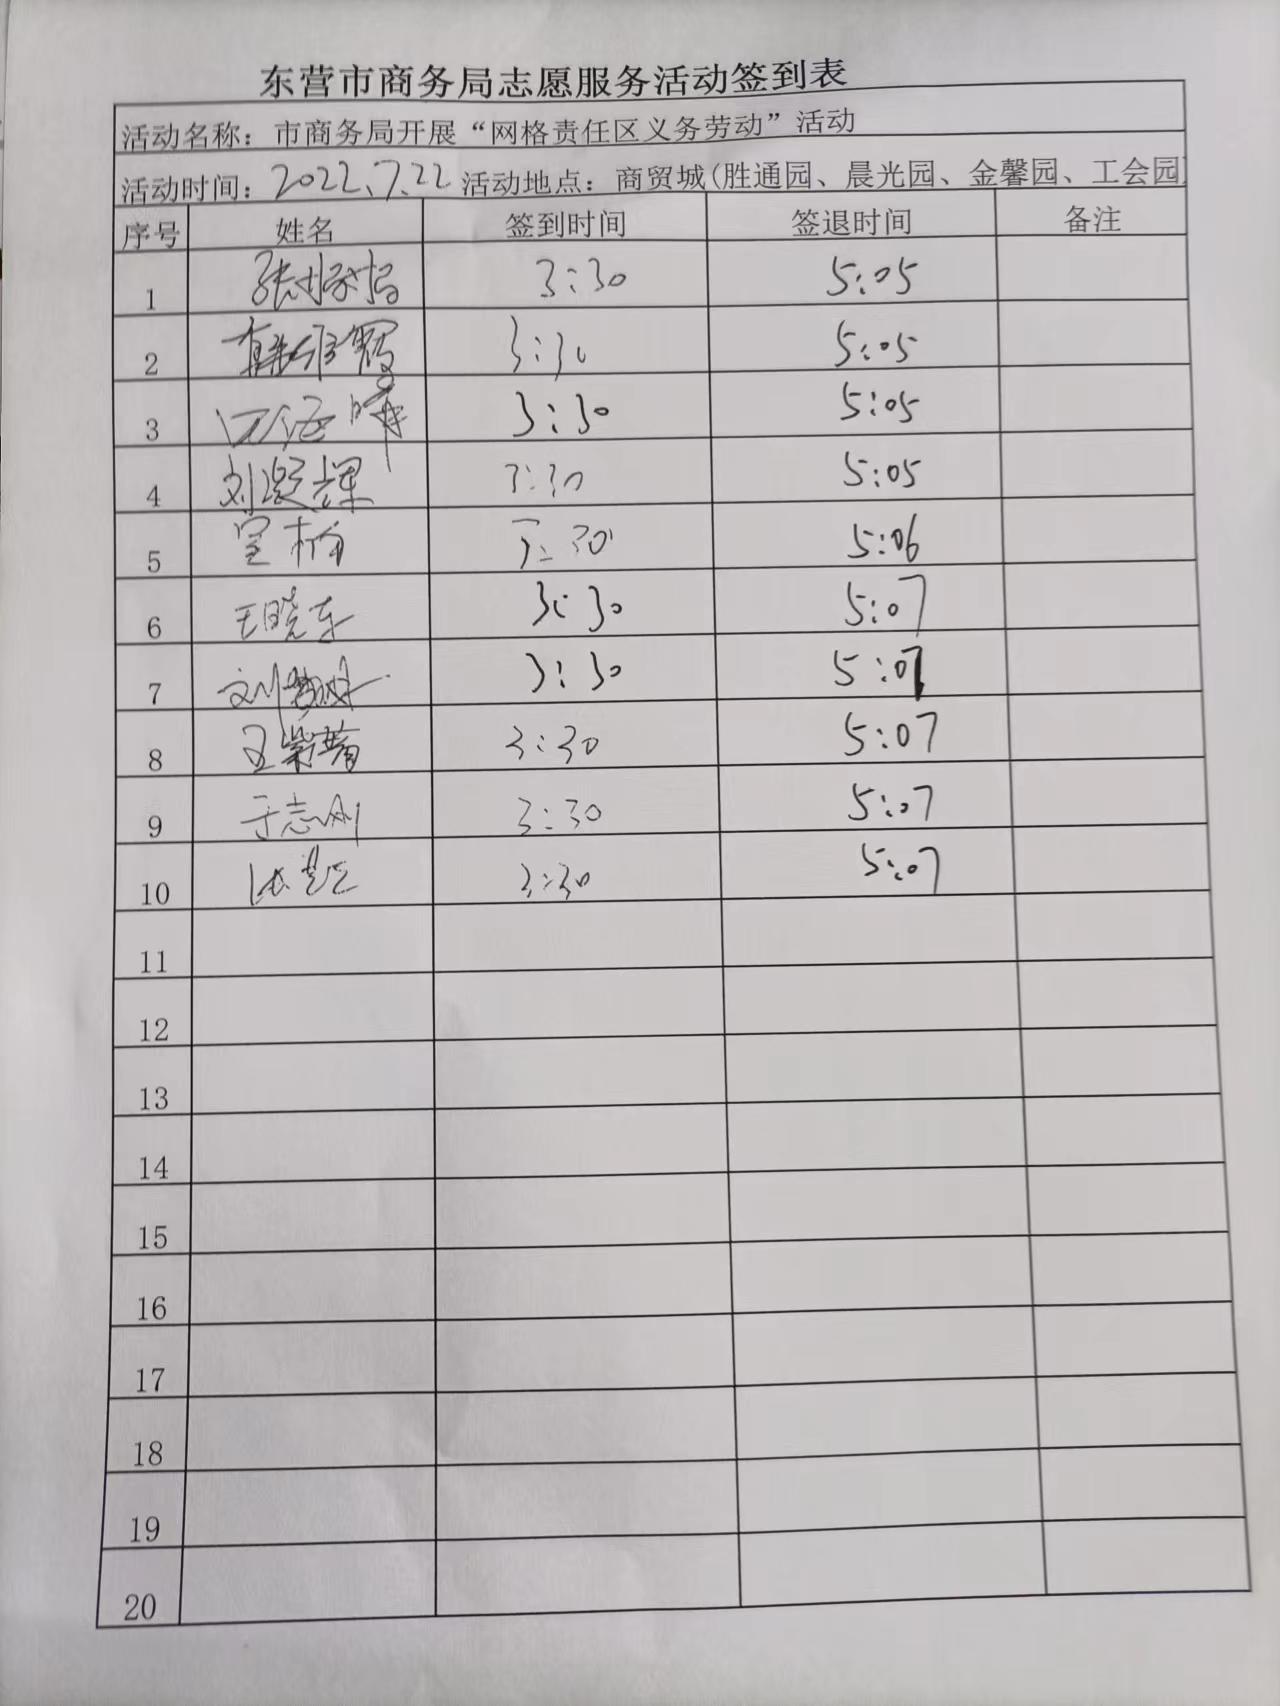 东营市商务局志愿服务活动签到表
活动名称：市商务局开展“网格责任区义务劳动”活动
活动时间：2022.7.22 活动地点：商贸城(胜通园、晨光园、金馨园、工会园
序号 姓名 签到时间 签退时间 备注
1 3:30 5:05
2 3:30 5:05
3 3:30 5:05
4 3:30 5:05
5 3:30 5:06
6 王晓东 3:30 5:07
7 3:30 5:07
8 3:30 5:07
9 于志刚 3:30 5:07
10 3:30 5:07
11
12
13
14
15
16
17
18
19
20